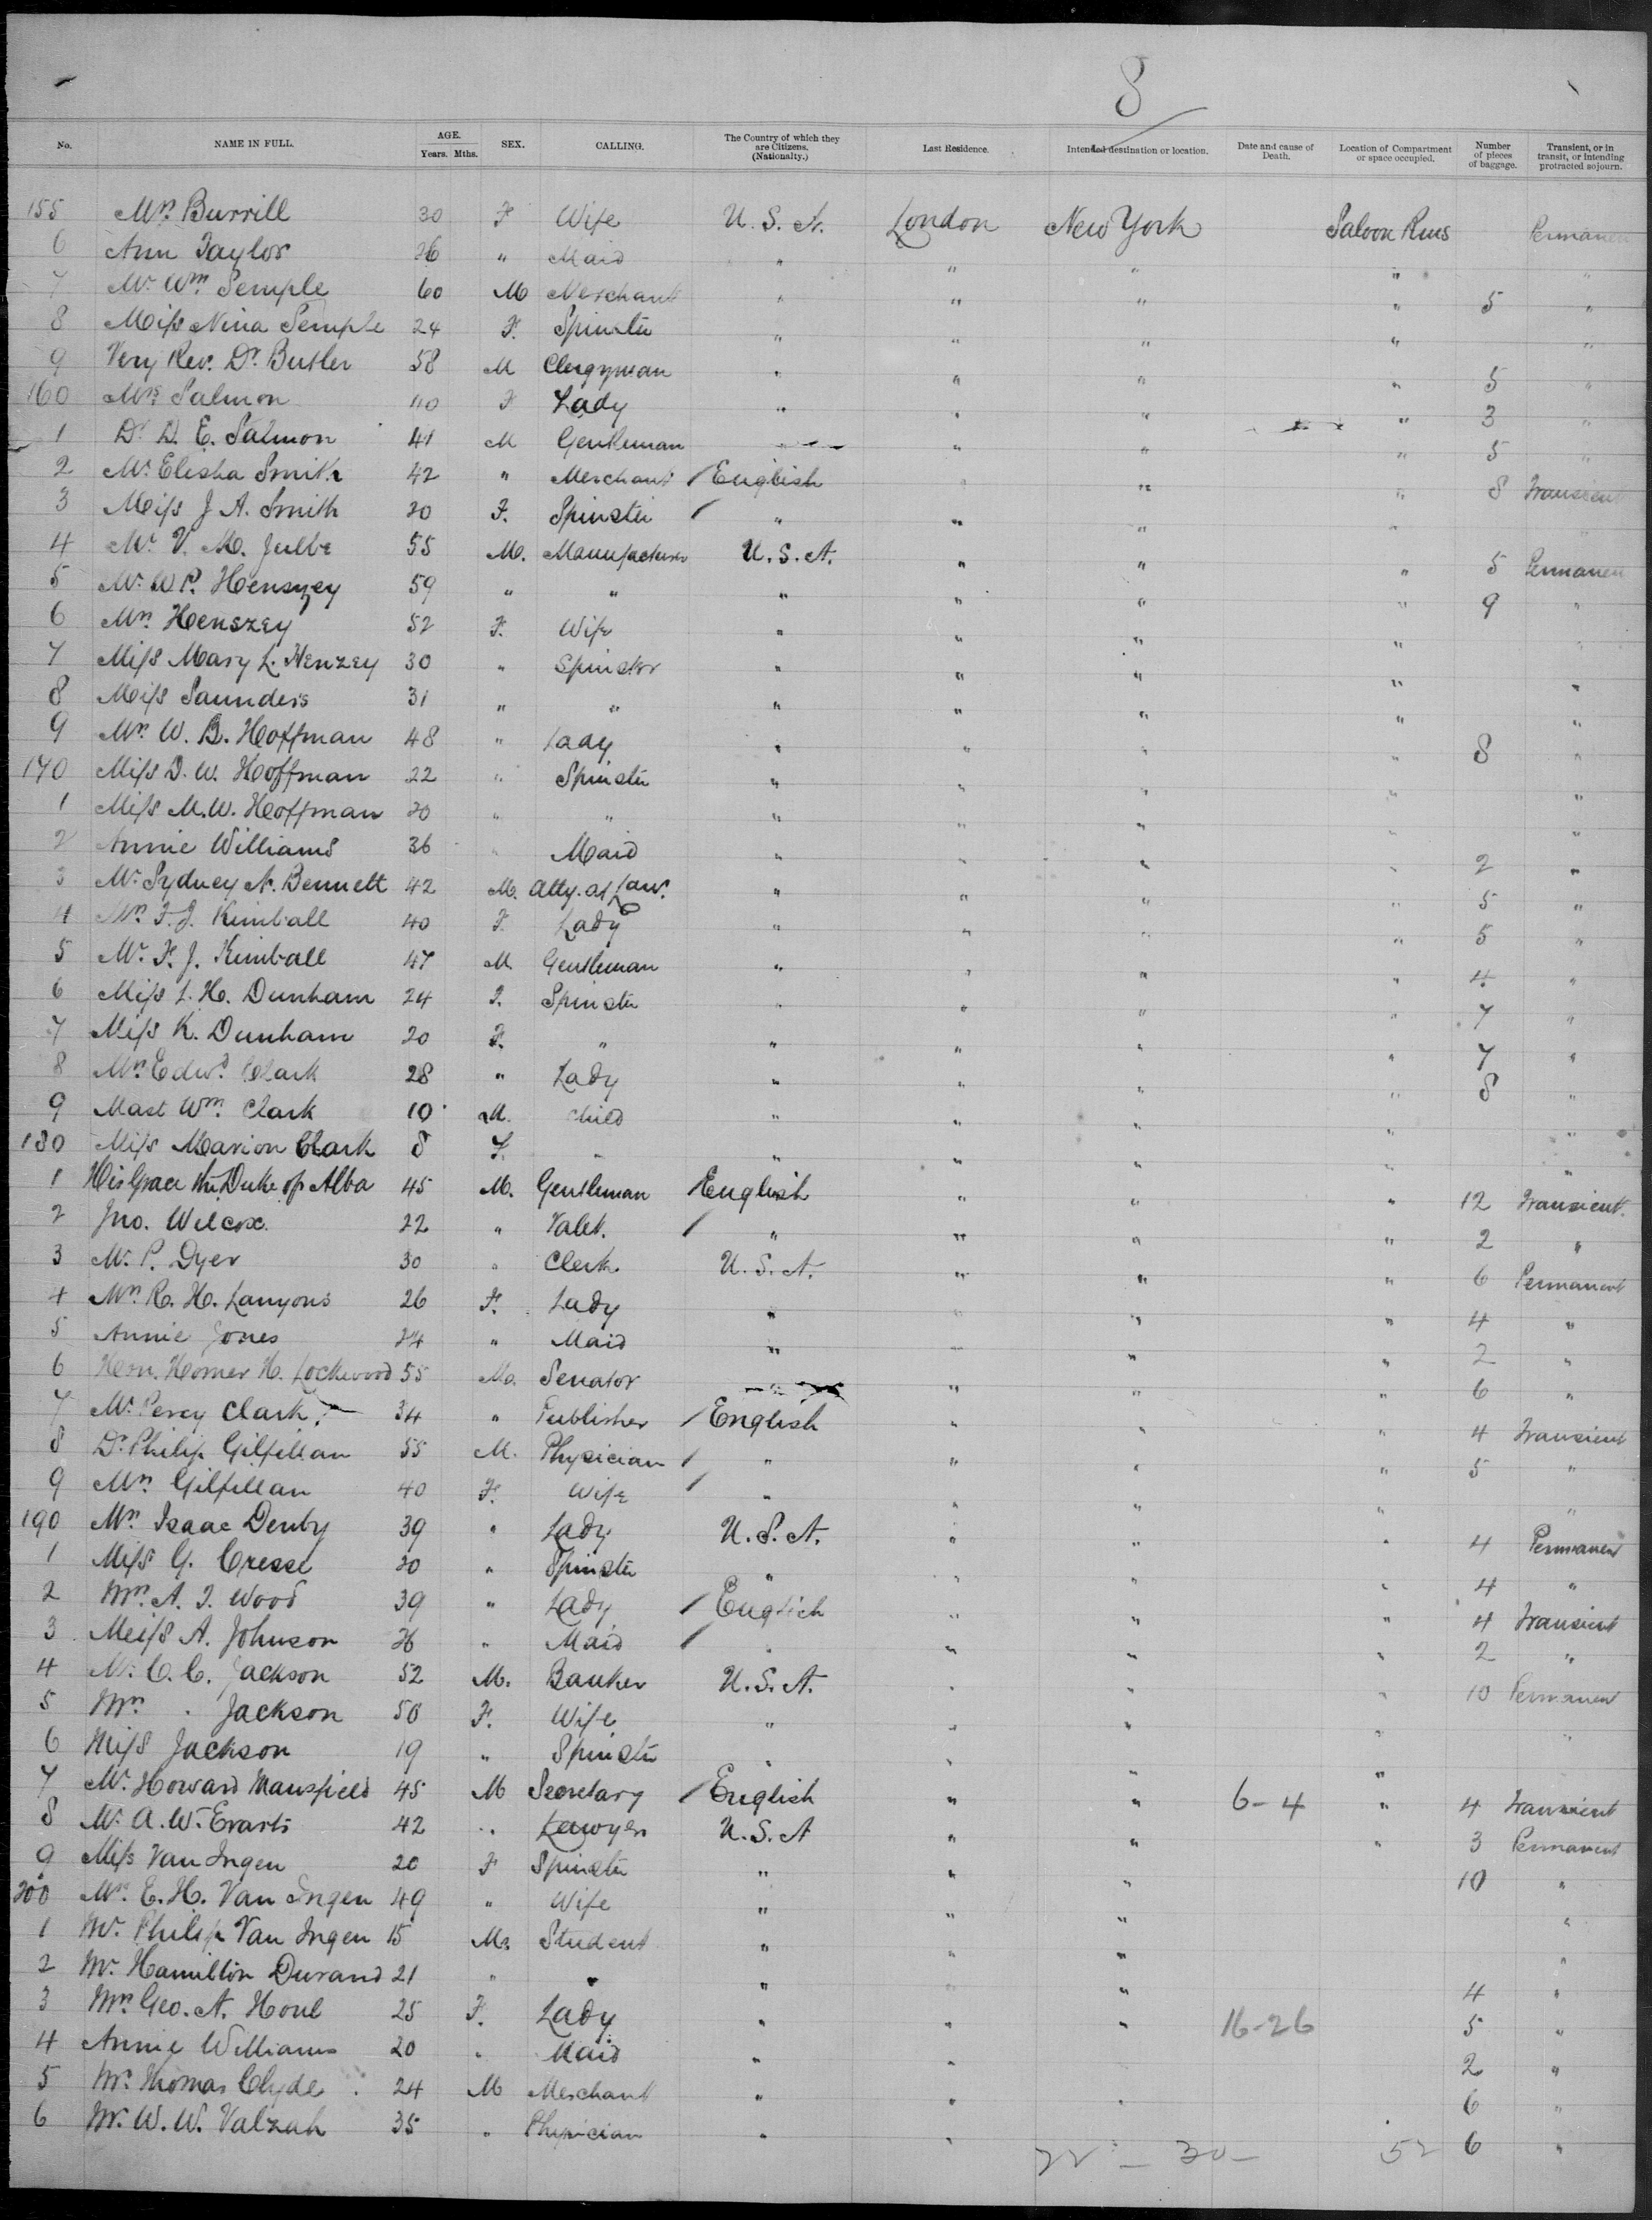 8
No. NAME IN FULL. AGE. Years. Mths. SEX. CALLING. The Country of which they are Citizens. (Nationalty.) Last Residence. Intended destination or location. Date and cause of Death. Location of Compartment or space occupied. Number of pieces of baggage. Transient, or in transit, or intending protracted sojourn.
155 Mrs. Burrill 30 F Wife U. S. A. London New York Saloon Rms
6 Ann Taylor 26 " Maid " " " " "
7 Mr. Wm. Semple 60 M Merchant " " " " 5 "
8 Miss Nina Semple 24 F. Spinster " " " " "
9 Very Rev. Dr. Butler 58 M Clergyman " " " " 5 "
160 Mrs. Salmon 40 F Lady " " " " 3 "
1 Dr. D. E. Salmon 41 M Gentleman " " " " 5 "
2 Mr. Elisha Smith 42 " Merchant English " " " 8 Transient
3 Miss J A. Smith 20 F. Spinster " " " " "
4 Mr. V. M. 55 M. Manufacturer U. S. A. " " " 5
5 Mr. W P. Henszey 59 " " " " " " 9 "
6 Mrs. Henszey 52 F. Wife " " " " "
7 Miss Mary L. Henzey 30 " Spinster " " " " "
8 Miss Saunders 31 " " " " " " "
9 Mrs. W. B. Hoffman 48 " Lady " " " " 8 "
170 Miss D. W. Hoffman 22 " Spinster " " " " "
1 Miss M. W. Hoffman 20 " " " " " " "
2 Annie Williams 36 " Maid " " " " 2 "
3 Mr. Sydney A. Bennett 42 M. Atty. at Law. " " " " 5 "
4 Mrs. F. J. Kimball 40 F. Lady " " " " 5 "
5 Mr. F. J. Kimball 47 M. Gentleman " " " " 4 "
6 Miss L. H. Dunham 24 F. Spinster " " " " 7 "
7 Miss K. Dunham 20 F. " " " " " 7 "
8 Mrs. Edwd. Clark 28 " Lady " " " " 8 "
9 Mast Wm. Clark 10 M. Child " " " " "
180 Miss Marion Clark 8 F. " " " " "
1 His Grace the Duke of Alba 45 M. Gentleman English " " " 12 Transient.
2 Jno. Wilcox. 22 " Valet. " " " " 2 "
3 Mr. P. Dyer 30 " Clerk U. S. A. " " " 6 Permanent
4 Mrs. R. H. Lanyons 26 F. Lady " " " " 4 "
5 Annie Jones 24 " Maid " " " " 2 "
6 Hon. Homer H. Lockwood 55 M. Senator " " " " 6 "
7 Mr. Percy Clark. 34 " Publisher English " " " 4 Transient
8 Dr. Philip Gilfillan 55 M. Physician " " " " 5 "
9 Mrs. Gilfillan 40 F. Wife " " " " "
190 Mrs. Isaac Denby 39 " Lady U. S. A. " " " 4 Permanent
1 Miss G. 20 " Spinster " " " " 4 "
2 Mrs. A. J. Wood 39 " Lady English " " " 4 Transient
3 Miss A. Johnson 26 " Maid " " " " 2 "
4 Mr. C. C. Jackson 52 M. Banker U. S. A. " " " 10 Permanent
5 Mrs. Jackson 50 F. Wife " " " " "
6 Miss Jackson 19 " Spinster " " " "
7 Mr. Howard Mansfield 45 M Secretary English " " 6-4 " 4 Transient
8 Mr. A. W. Evarts 42 " Lawyer U. S. A " " " 3 Permanent
9 Miss Van Ingen 20 F Spinster " " " 10 "
200 Mrs. E. H. Van Ingen 49 " Wife " " " "
1 Mr. Philip Van Ingen 15 M. Student " " " "
2 Mr. Hamilton Durand 21 " " " " " 4 "
3 Mrs. Geo. A. 25 F. Lady " " " 16-26 5 "
4 Annie Williams 20 " Maid " " 2 "
5 Mr. Thomas Clyde 24 M Merchant " " " 6 "
6 Mr. W. W. Valzah 35 " Physician " " 6 "
22 - 30 - 52